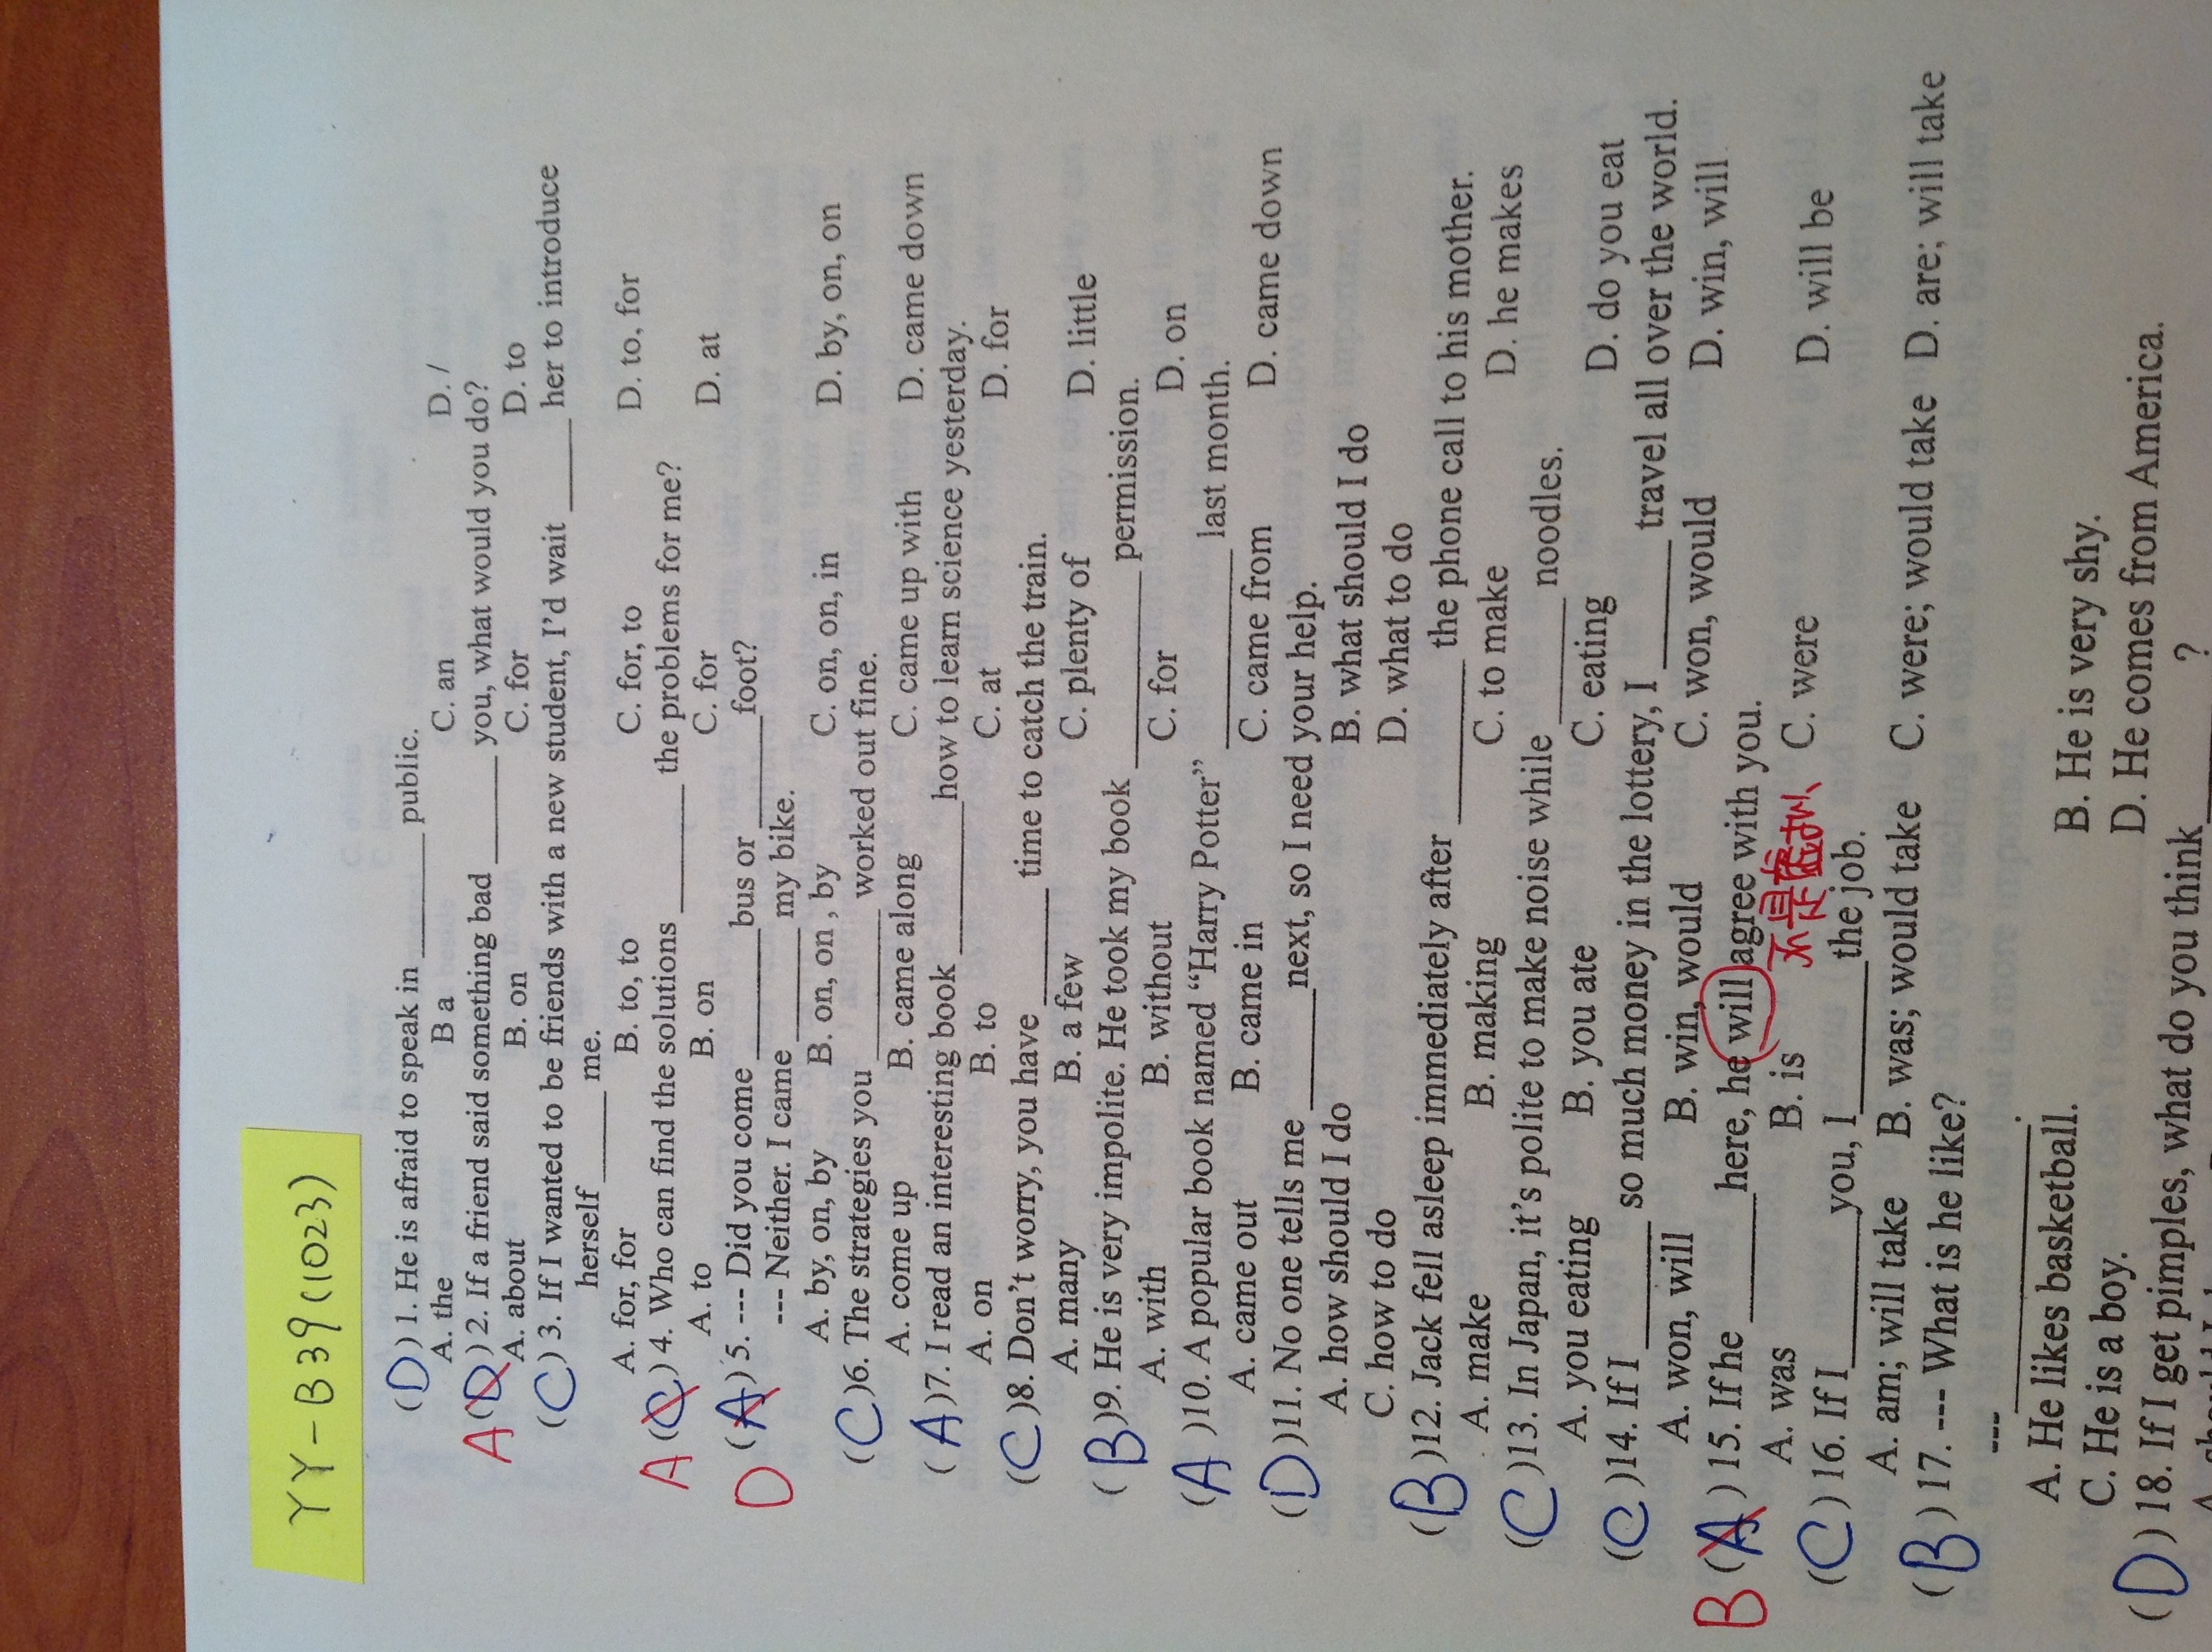 YY-B39(1023)
(D) 1. He is afraid to speak in ______ public.
A. the B a C. an D. /
A (D) 2. If a friend said something bad ______ you, what would you do?
A. about B. on C. for D. to
(C) 3. If I wanted to be friends with a new student, I'd wait _____ her to introduce
herself _____ me.
A. for, for B. to, to C. for, to D. to, for
A (C) 4. Who can find the solutions _______ the problems for me?
A. to B. on C. for D. at
D (A) 5. --- Did you come _______ bus or ______ foot?
--- Neither. I came ______ my bike.
A. by, on, by B. on, on , by C. on, on, in D. by, on, on
(C)6. The strategies you ________ worked out fine.
A. come up B. came along C. came up with D. came down
(A)7. I read an interesting book ________ how to learn science yesterday.
A. on B. to C. at D. for
(C)8. Don't worry, you have ______ time to catch the train.
A. many B. a few C. plenty of D. little
(B)9. He is very impolite. He took my book __________ permission.
A. with B. without C. for D. on
(A)10. A popular book named “Harry Potter” __________ last month.
A. came out B. came in C. came from D. came down
(D)11. No one tells me ______next, so I need your help.
A. how should I do B. what should I do
C. how to do D. what to do
(B)12. Jack fell asleep immediately after ________ the phone call to his mother.
A. make B. making C. to make D. he makes
(C)13. In Japan, it's polite to make noise while ______ noodles.
A. you eating B. you ate C. eating D. do you eat
(C)14. If I ______ so much money in the lottery, I ______ travel all over the world.
A. won, will B. win, would C. won, would D. win, will
B (A) 15. If he ______here, he will agree with you.
A. was B. is 不是虚拟 C. were D. will be
(C) 16. If I_______you, I_______the job.
A. am; will take B. was; would take C. were; would take D. are; will take
(B) 17. --- What is he like?
---______________.
A. He likes basketball. B. He is very shy.
C. He is a boy. D. He comes from America.
(D) 18. If I get pimples, what do you think______?